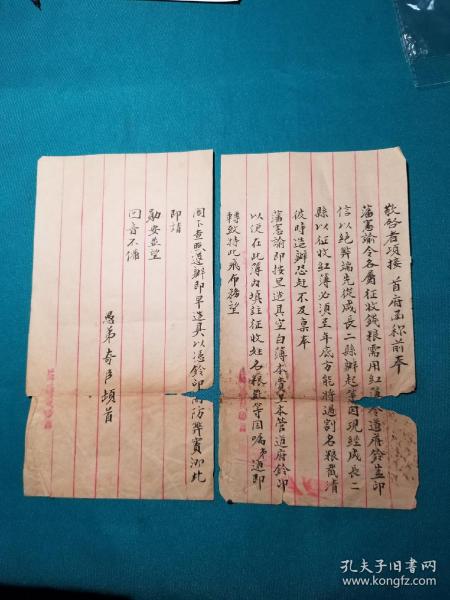 敬啓者頃接 首府函称前奉
藩憲諭令各屬征收錢粮需用紅簿令道府鈐盖印
信以絕弊端先從成長二縣辦起等因現經成長二
縣以征收紅簿必須至年底方能將過割名粮截清
彼時造辦恐趕不及稟奉
藩憲諭即按里造具空白簿本賫呈本管道府鈐印
以便在此簿内填註征收姓名粮數等因囑弟通即
轉致特此飛布務望
閣下查照遵辦即早造具以憑鈐印而防弊竇泐此
即請
勛安並望
回音不備
愚弟 頓首
孔夫子旧书网
www.kongfz.com